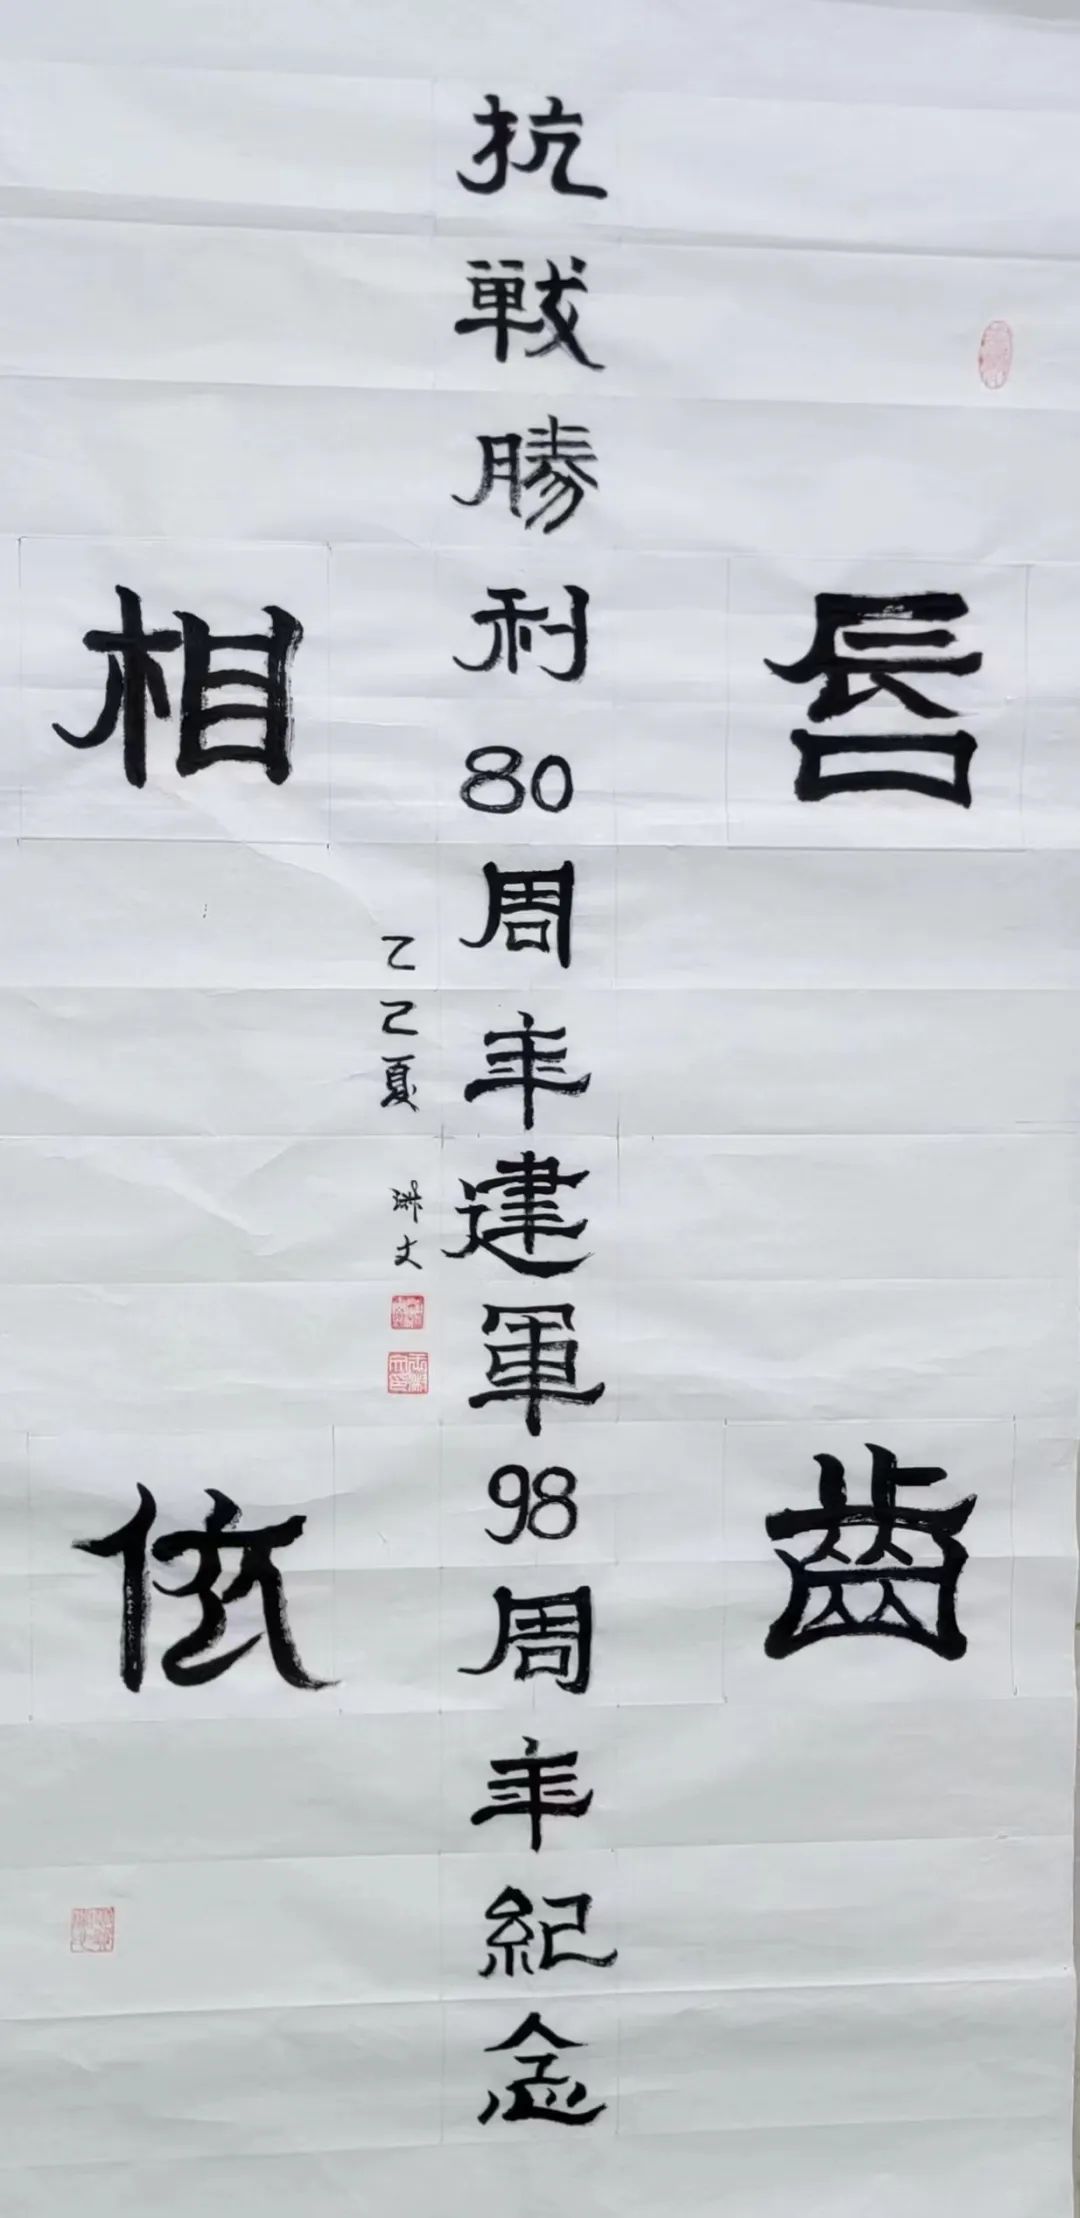 唇齒
抗戰勝利80周年建軍98周年紀念
相依
乙巳夏